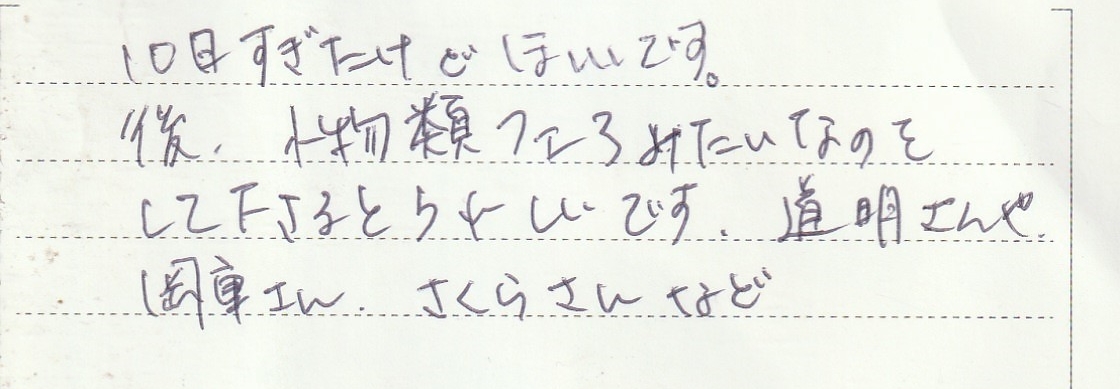 10日すぎだけどほしいです。
後、小物類フェフみたいなのを
して下さるとうれしいです、道明さんや、
さん、さくらさんなど